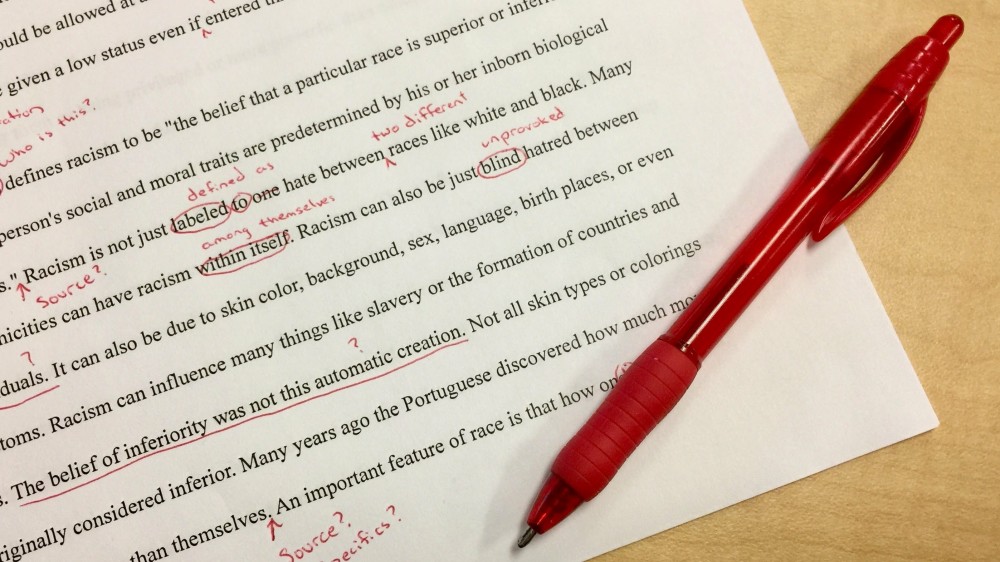 ould be allowed at a
e given a low status even if entered th
ation
who is this?
defines racism to be "the belief that a particular race is superior or inferi
person's social and moral traits are predetermined by his or her inborn biological
two different
s." Racism is not just labeled to one hate between races like white and black. Many
defined as
unprovoked
Source?
nicities can have racism within itself. Racism can also be just blind hatred between
among themselves
?
duals. It can also be due to skin color, background, sex, language, birth places, or even
toms. Racism can influence many things like slavery or the formation of countries and
?
s. The belief of inferiority was not this automatic creation. Not all skin types or colorings
riginally considered inferior. Many years ago the Portuguese discovered how much mo
than themselves. An important feature of race is that how on
Source?
pecifics?